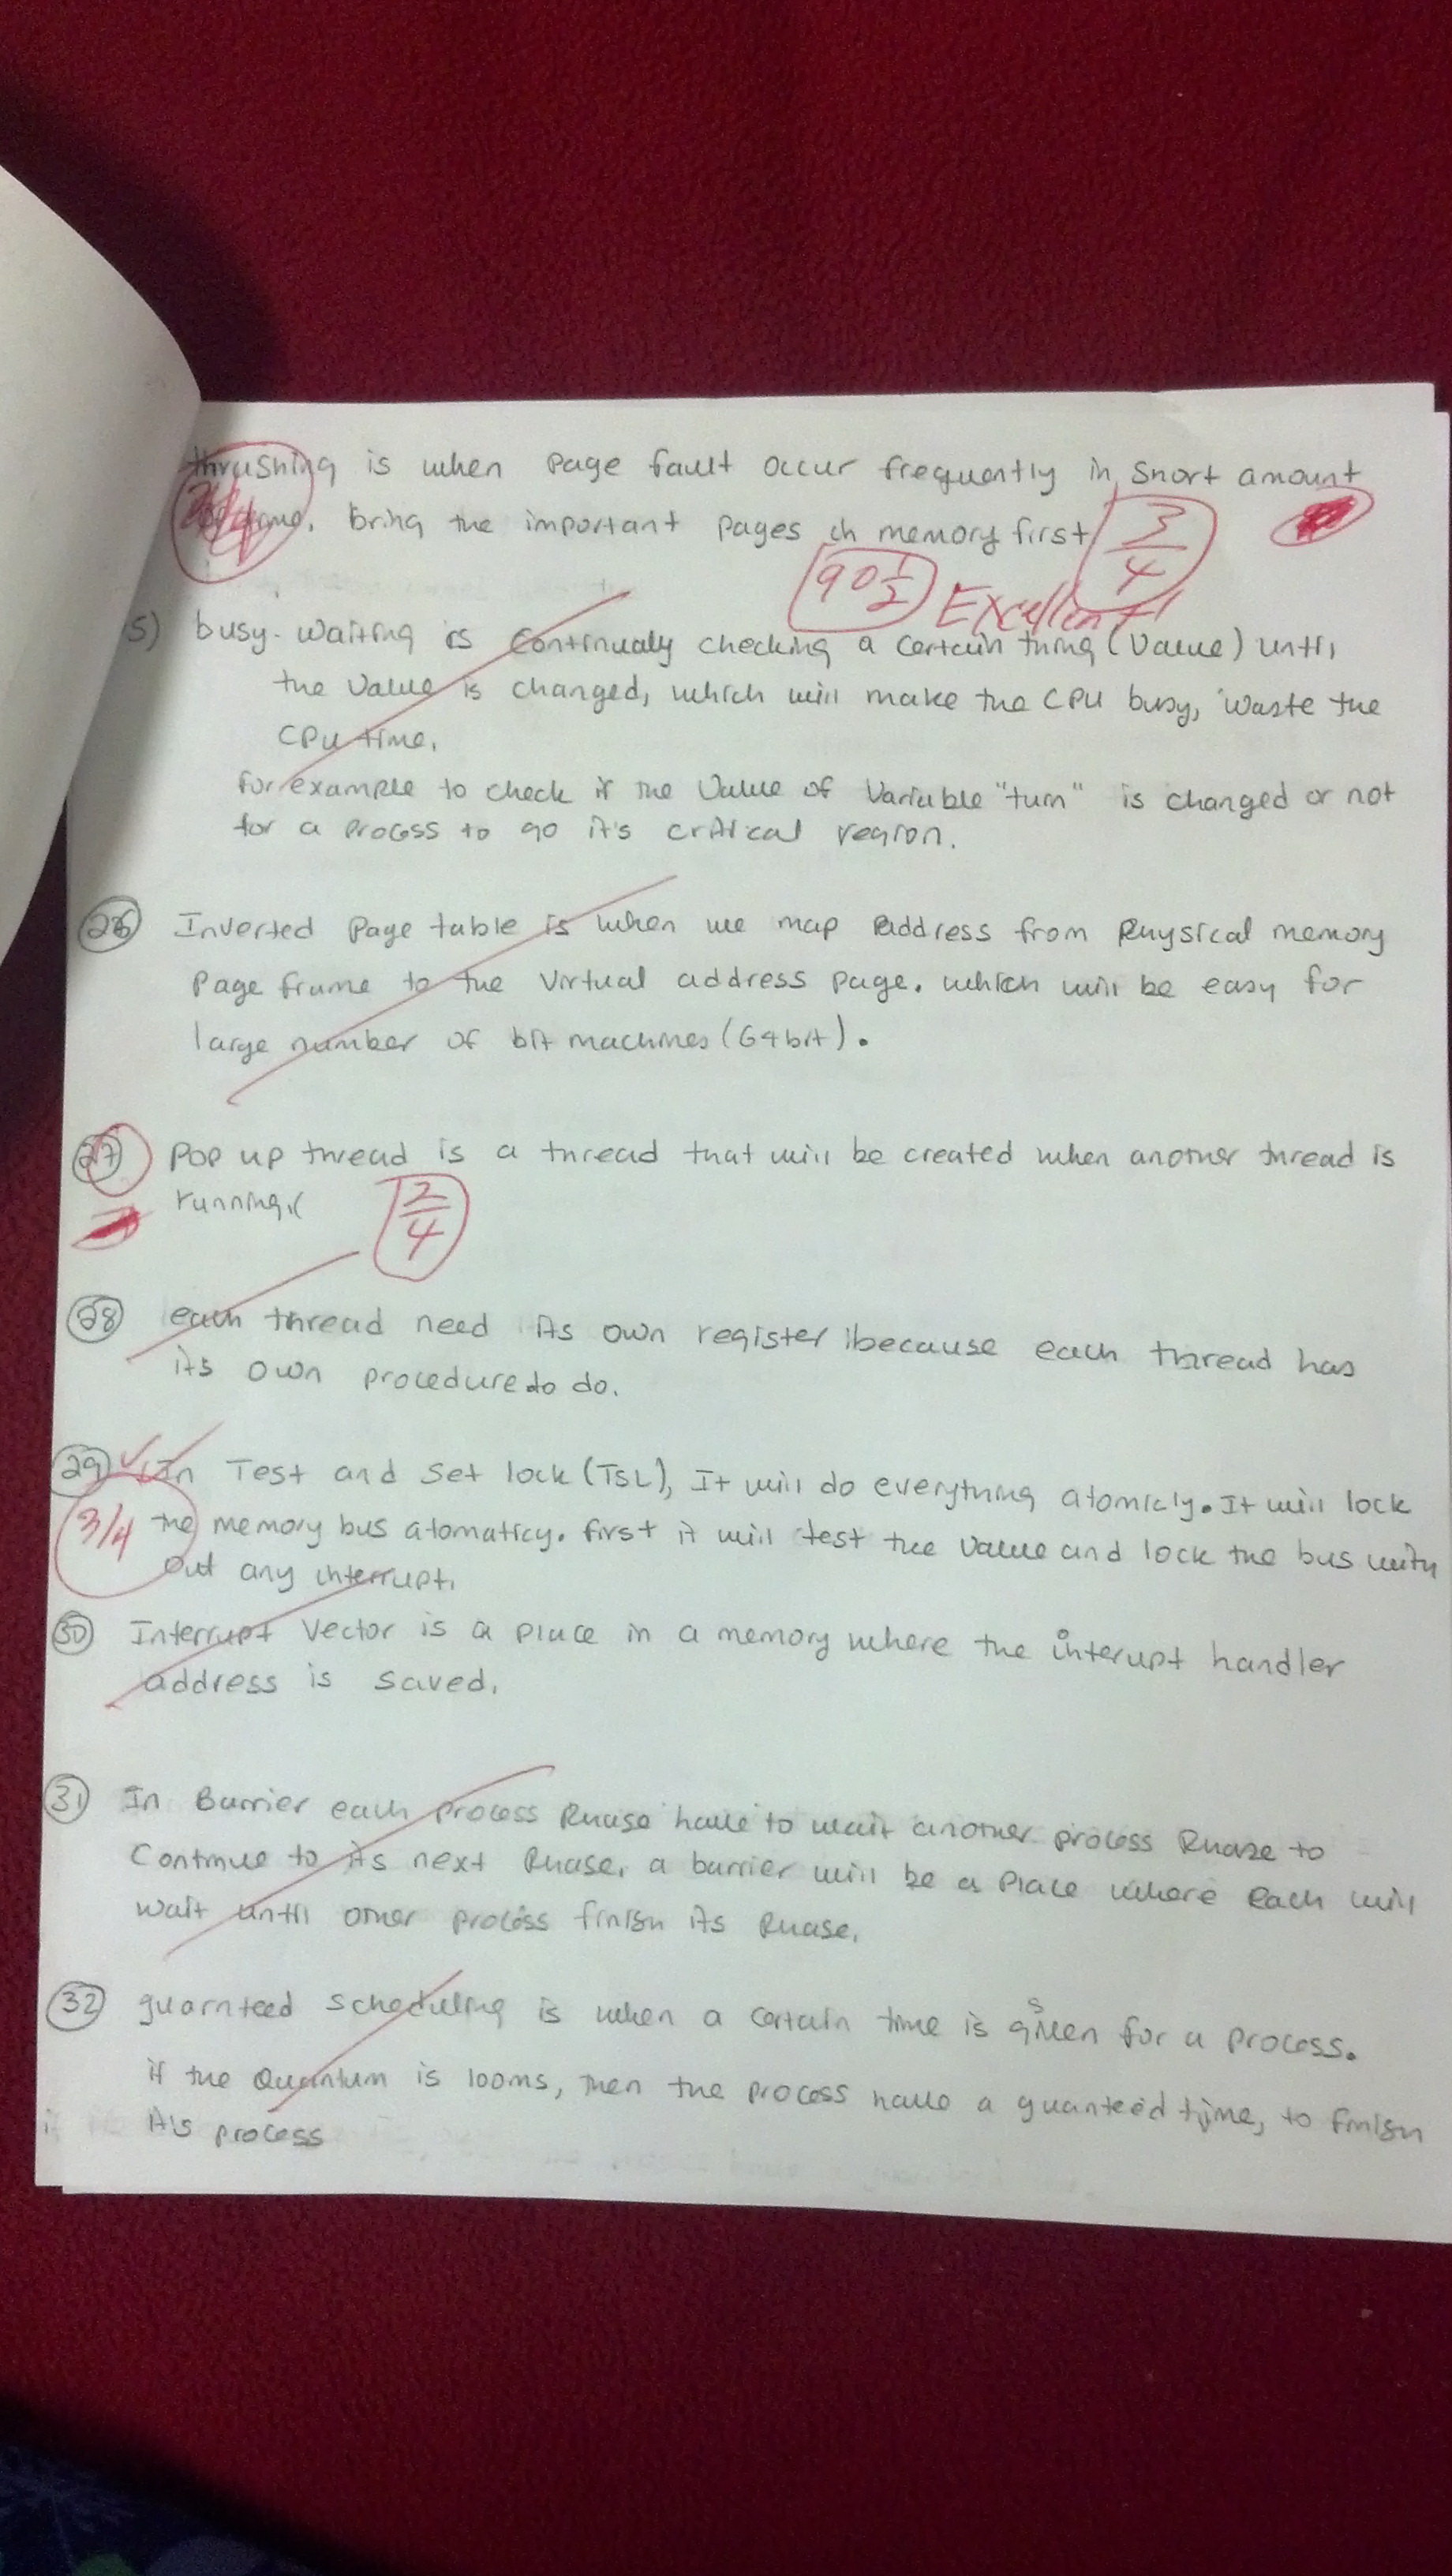 thrushing is when page fault occur frequently in short amount
time. bring the important pages in memory first 3/4
90 1/2 Excellent
5) busy-waiting is continualy checking a certain thing (value) until
the value is changed, which will make the CPU busy, waste the
CPU time.
for example to check if the value of variable "turn" is changed or not
for a process to go it's critical region.
26 Inverted page table is when we map address from physical memory
page frame to the virtual address page. which will be easy for
large number of bit machines (64bit).
27 Pop up thread is a thread that will be created when another thread is
running. 2/4
28 each thread need its own register because each thread has
its own procedure to do.
29 In Test and Set lock (TSL), It will do everything atomicly. It will lock
3/4 the memory bus atomaticy. first it will test the value and lock the bus with
out any interrupt.
30 Interrupt Vector is a place in a memory where the interupt handler
address is saved.
31 In Barrier each process phase have to wait another process phase to
Continue to its next phase. a barrier will be a place where each will
wait until other process finish its phase.
32 guarnteed scheduling is when a certain time is given for a process.
if the Quantum is 100ms, then the process have a guanteed time, to finish
its process